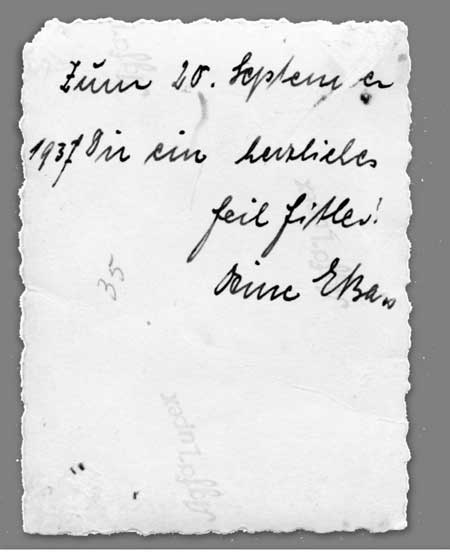 Zum 20. September
1937 Dir ein herzliches
Heil Hitler!
Deine
35
Agfa Lupex